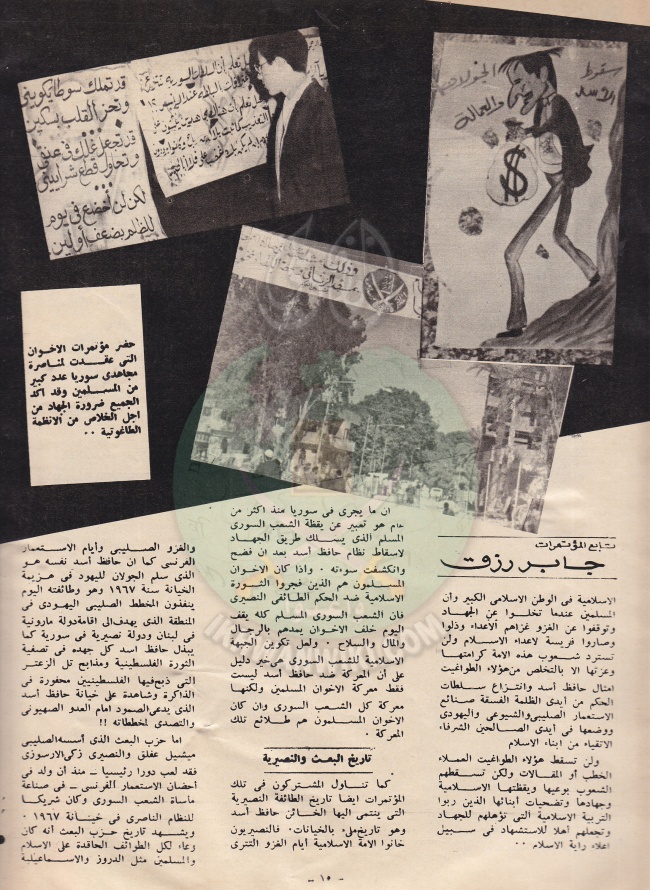 قد تملك سوطا يكويني
وتحز القلب بسكين
قد تجعل أغلالك في عنقي
وتحاول قطع شراييني
لكن لن أخضع في يوم
للظلم بضعف أو لين
سقوط
الأسد
الجولان
والعمالة
$
حضر مؤتمرات الاخوان
التى عقدت لمناصرة
مجاهدى سوريا عدد كبير
من المسلمين وقد أكد
الجميع ضرورة الجهاد من
اجل الخلاص من الأنظمة
الطاغوتية ..
تابع المؤتمرات
جابر رزق
الاسلامية فى الوطن الاسلامى الكبير وأن
المسلمين عندما تخلوا عن الجهاد
وتوقفوا عن الغزو غزاهم الأعداء وذلوا
وصاروا فريسة لاعداء الاسلام ولن
تسترد شعوب هذه الامة كرامتها
وعزتها الا بالتخلص من هؤلاء الطواغيت
امثال حافظ أسد وانتزاع سلطات
الحكم من أيدى الظلمة الفسقة صنائع
الاستعمار الصليبى والشيوعى واليهودى
ووضعها فى أيدى الصالحين الشرفاء
الاتقياء من ابناء الاسلام
ولن تسقط هؤلاء الطواغيت العملاء
الخطب أو المقالات ولكن تسقطهم
الشعوب بوعيها ويقظتها الاسلامية
وجهادها وتضحيات أبنائها الذين ربوا
التربية الاسلامية التى تؤهلهم للجهاد
وتجعلهم أهلا للاستشهاد فى سبيل
اعلاء راية الاسلام ..
ان ما يجرى فى سوريا منذ اكثر من
عام هو تعبير عن يقظة الشعب السورى
المسلم الذى يسلك طريق الجهاد
لاسقاط نظام حافظ أسد بعد ان فضح
وانكشفت سوءته . واذا كان الاخوان
المسلمون هم الذين فجروا الثورة
الاسلامية ضد الحكم الطائفى النصيرى
فان الشعب السورى المسلم كله يقف
اليوم خلف الاخوان يمدهم بالرجال
والمال والسلاح . ولعل تكوين الجبهة
الاسلامية للشعب السورى هى خير دليل
على أن المعركة ضد حافظ أسد ليست
فقط معركة الاخوان المسلمين ولكنها
معركة كل الشعب السورى وان كان
الاخوان المسلمون هم طلائع تلك
المعركة .
تاريخ البعث والنصيرية
كما تناول المشتركون فى تلك
المؤتمرات ايضا تاريخ الطائفة النصيرية
التى ينتمى اليها الخائن حافظ أسد
وهو تاريخ ملىء بالخيانات . فالنصيريون
خانوا الامة الاسلامية ايام الغزو التترى
والغزو الصليبى وأيام الاستعمار
الفرنسى كما ان حافظ أسد نفسه هو
الذى سلم الجولان لليهود فى هزيمة
الخيانة سنة ١٩٦٧ وهو وطائفته اليوم
ينفذون المخطط الصليبى اليهودى فى
المنطقة الذى يهدف الى اقامة دولة مارونية
فى لبنان ودولة نصيرية فى سورية كما
يبذل حافظ أسد كل جهده فى تصفية
الثورة الفلسطينية ومذابح تل الزعتر
التى ذبح فيها الفلسطينيين محفورة فى
الذاكرة وشاهدة على خيانة حافظ أسد
الذى يدعى الصمود امام العدو الصهيونى
والتصدى لمخططاته !!
اما حزب البعث الذى أسسه الصليبى
ميشيل عفلق والنصيرى زكى الارسوزى
فقد لعب دورا رئيسيا - منذ أن ولد فى
أحضان الاستعمار الفرنسى - فى صناعة
مأساة الشعب السورى وكان شريكا
للنظام الناصرى فى خيانة ١٩٦٧ .
ويشهد تاريخ حزب البعث أنه كان
وعاء لكل الطوائف الحاقدة على الاسلام
والمسلمين مثل الدروز والاسماعيلية
- ١٥ -